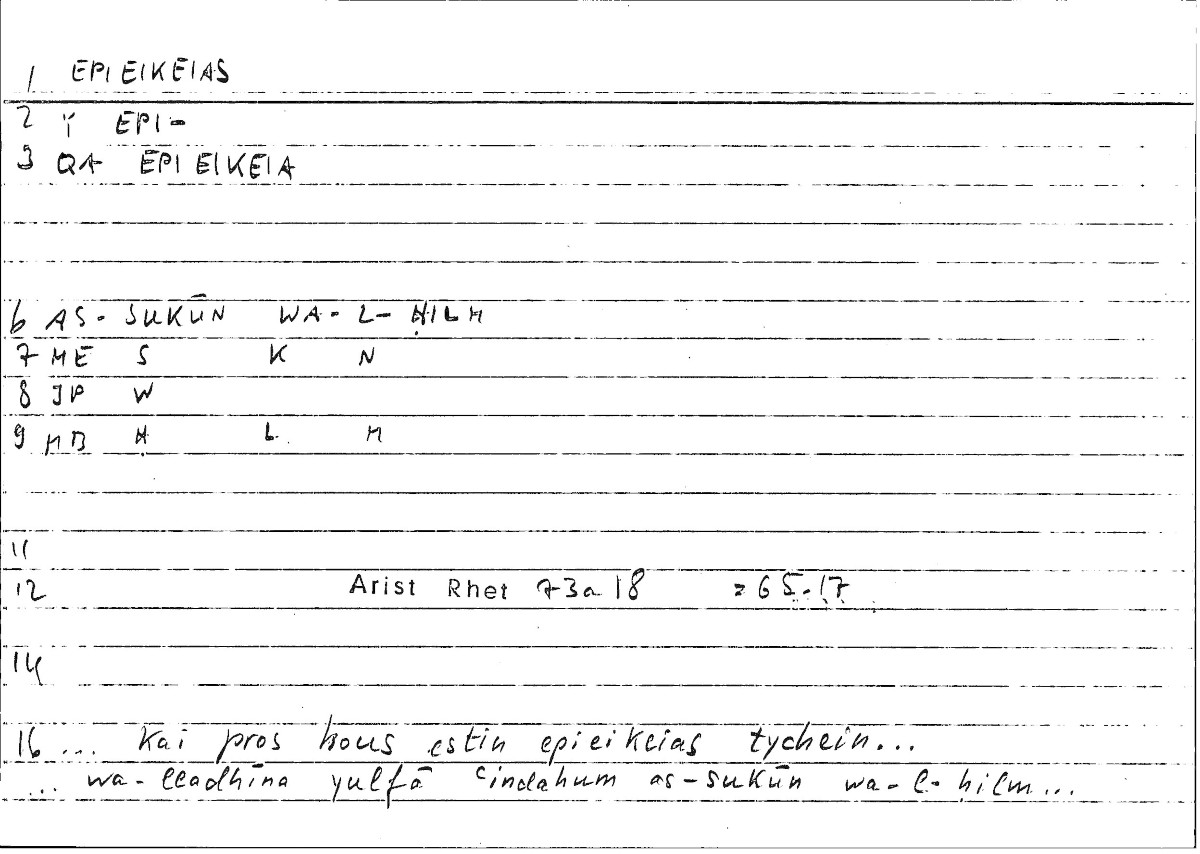 1 EPIEIKEIAS
2 Y EPI-
3 QA EPIEIKEIA
6 AS-SUKŪN WA-L-ḤILM
7 ME S K N
8 JP W
9 MB Ḥ L M
11
12 Arist Rhet 73a18 =65.17
14
16 ... kai pros hous estin epieikeias tychein...
... wa-lladhīna yulfā ʿindahum as-sukūn wa-l-ḥilm...